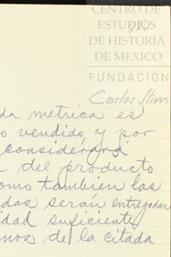 CENTRO DE
ESTUDIOS
DE HISTORIA
DE MEXICO
FUNDACIÓN
Carlos Slim
da metrica es
o vendido, y por
considerará
del producto
omo tambien las
das serán entregadas
idad suficiente
nos de la citada